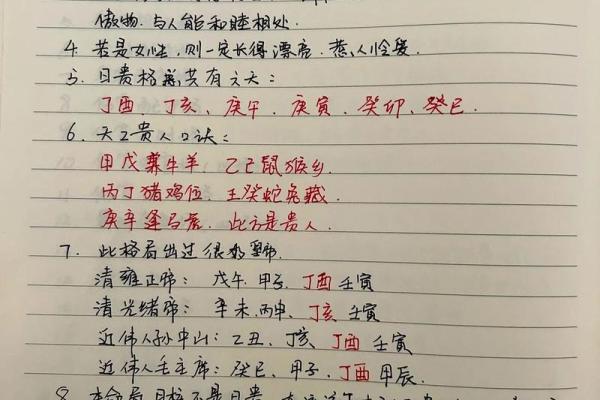 傲物.与人能和睦相处.
4. 若是女性,则一定长得漂亮.惹人怜爱.
5. 日贵格总共有六天:
丁酉、丁亥、庚午、庚寅、癸卯、癸巳.
6. 天乙贵人口诀:
甲戊兼牛羊.乙己鼠猴乡.
丙丁猪鸡位.壬癸蛇兔藏.
庚辛逢马虎.此方是贵人.
7. 此格局出过很多皇帝.
清雍正帝: 戊午.甲子.丁酉 壬寅
清光绪帝: 辛未.丙申、丁亥 壬寅
近伟人孙中山: 乙丑、丁亥 丁酉 壬寅
近伟人毛主席: 癸巳、甲子、丁酉 甲辰.
8.